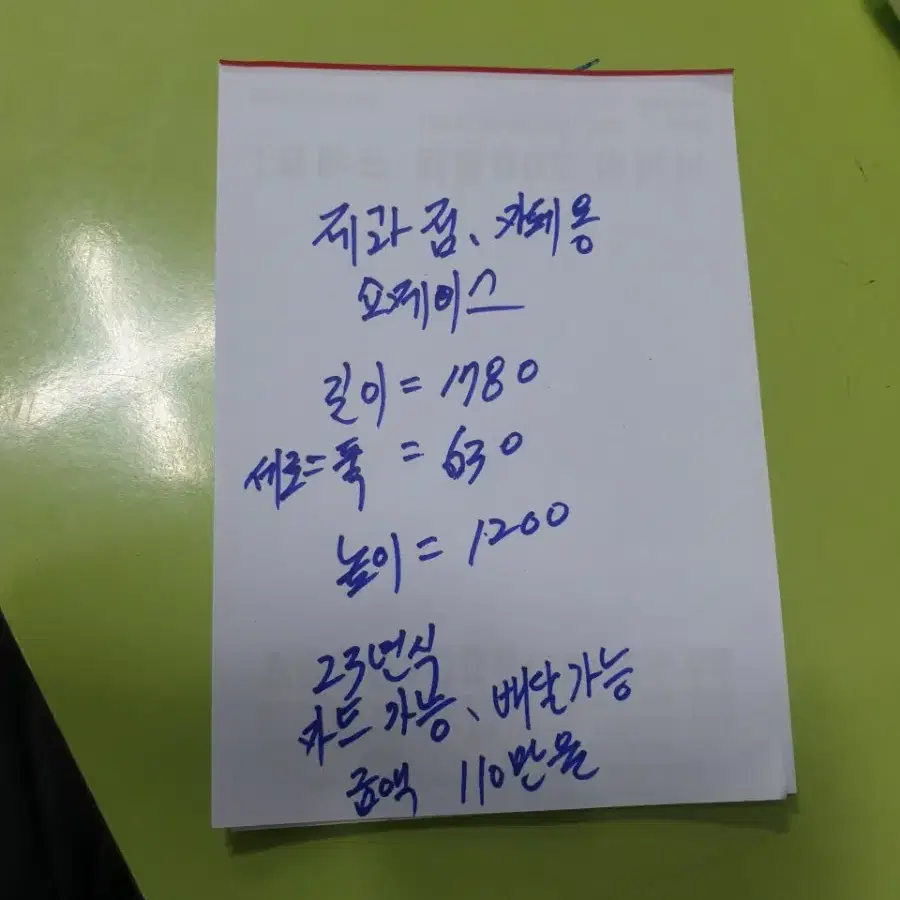 제과점、카페용
쇼케이스
길이 = 1780
세로= 폭 = 630
높이 = 1200
23년식
카드 가능、배달가능
금액 110만원